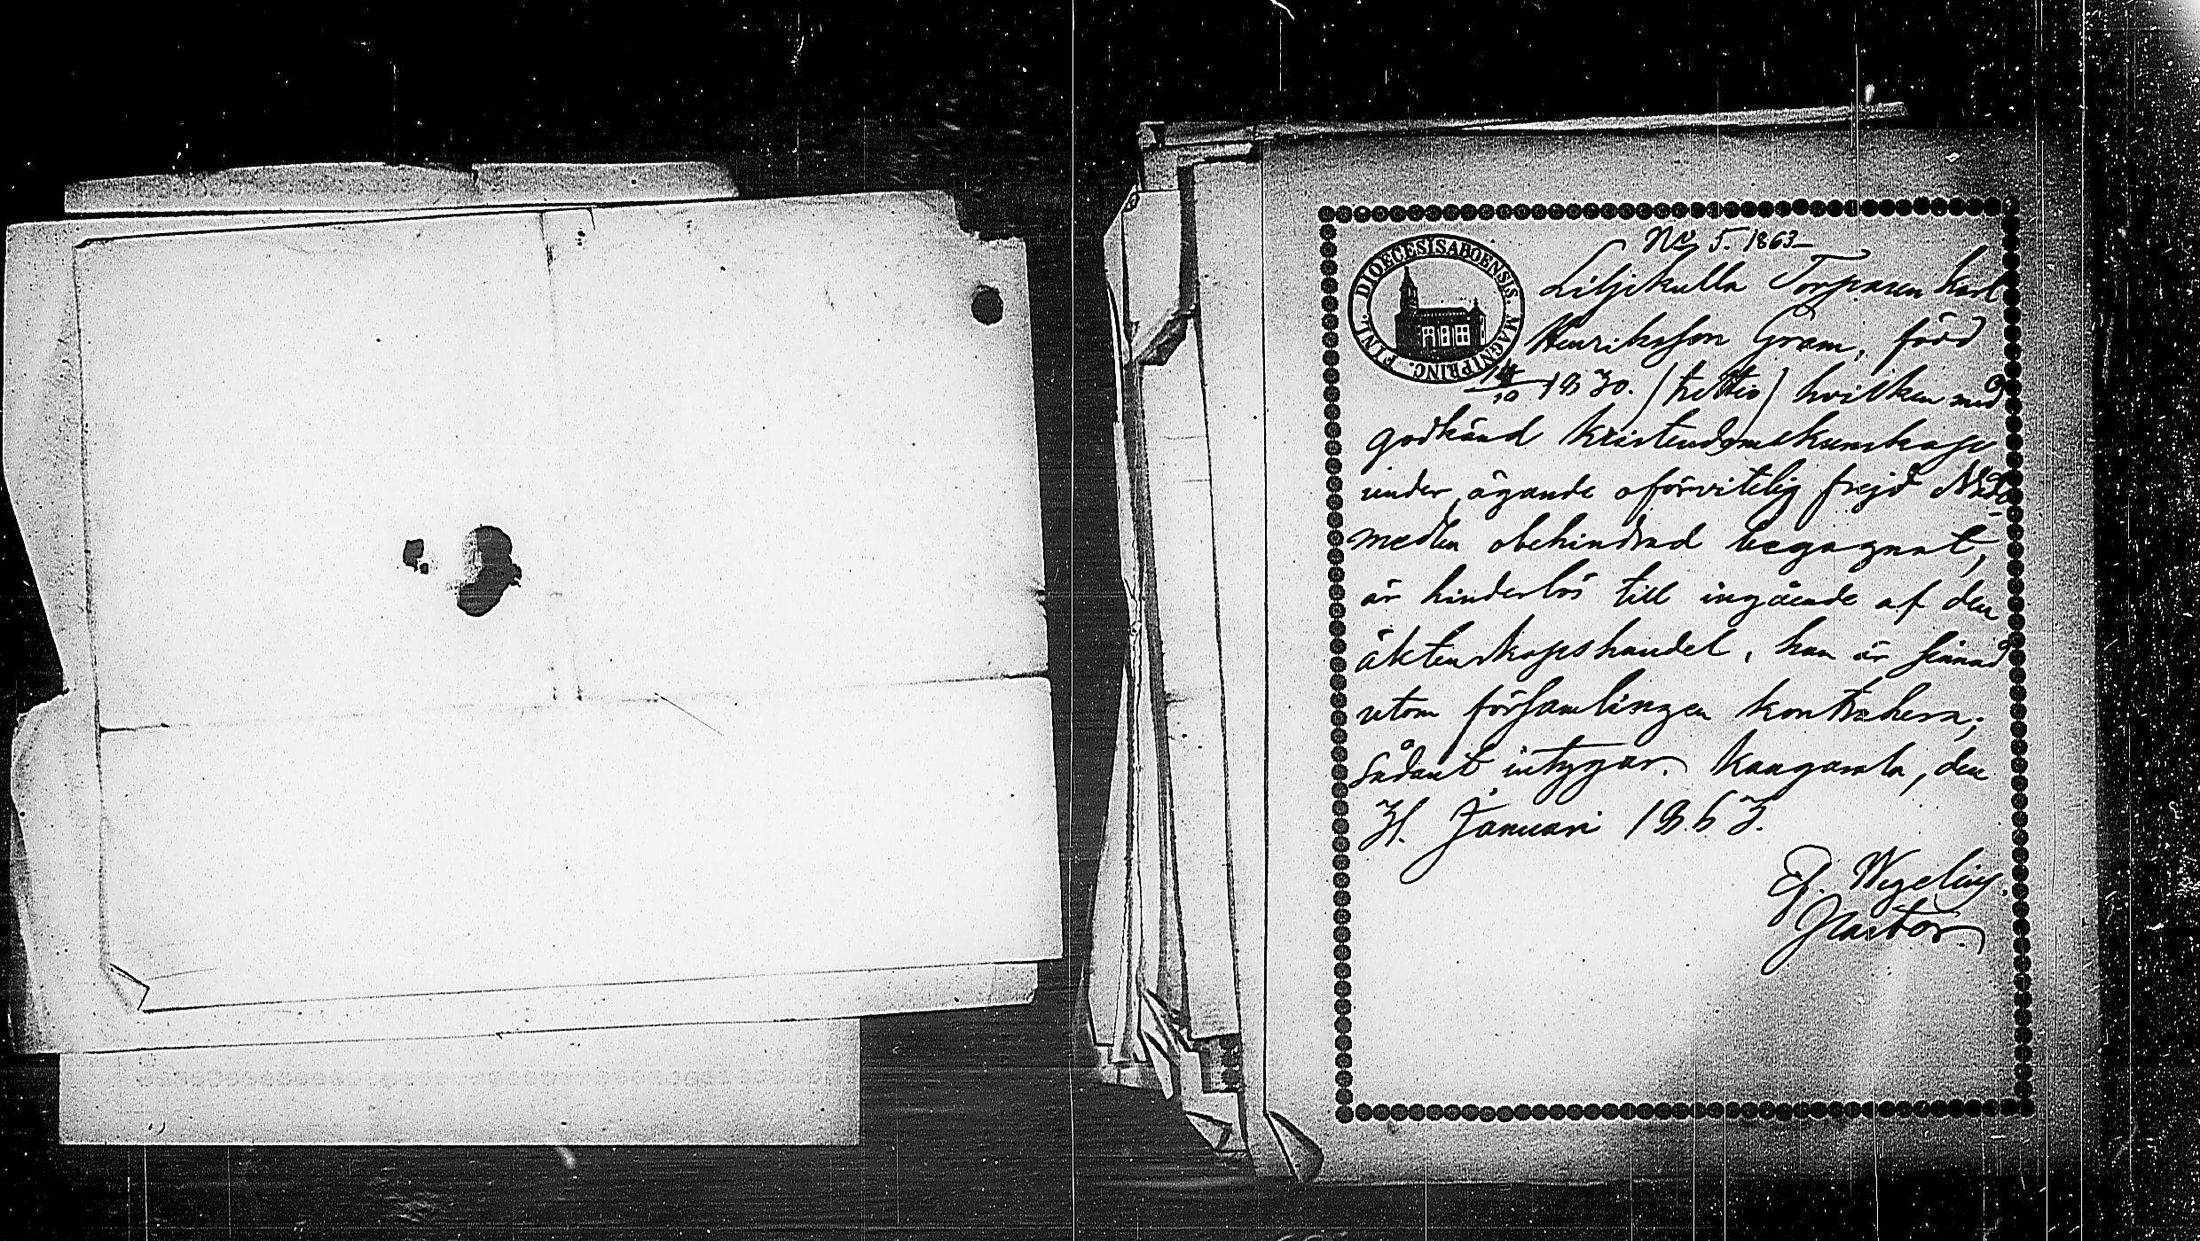 No 5. 1863
DIOECESIS ABOENSIS. MAGNI PRINC. FINL.
Liljekulla Torparen Karl
Henriksson Gram, född
/10 1830. (trettio) hvilken med
godkänd kristendomskunskap
under ägande oförvitelig frejd Nåde
medlen obehindrad begagnat,
är hinderlös till ingående af den
äktenskapshandel, han är sinnad
utom församlingen kontrahera;
sådant intygar. Kangasala, den
31. Januari 1863.
Wegelius.
Pastor.